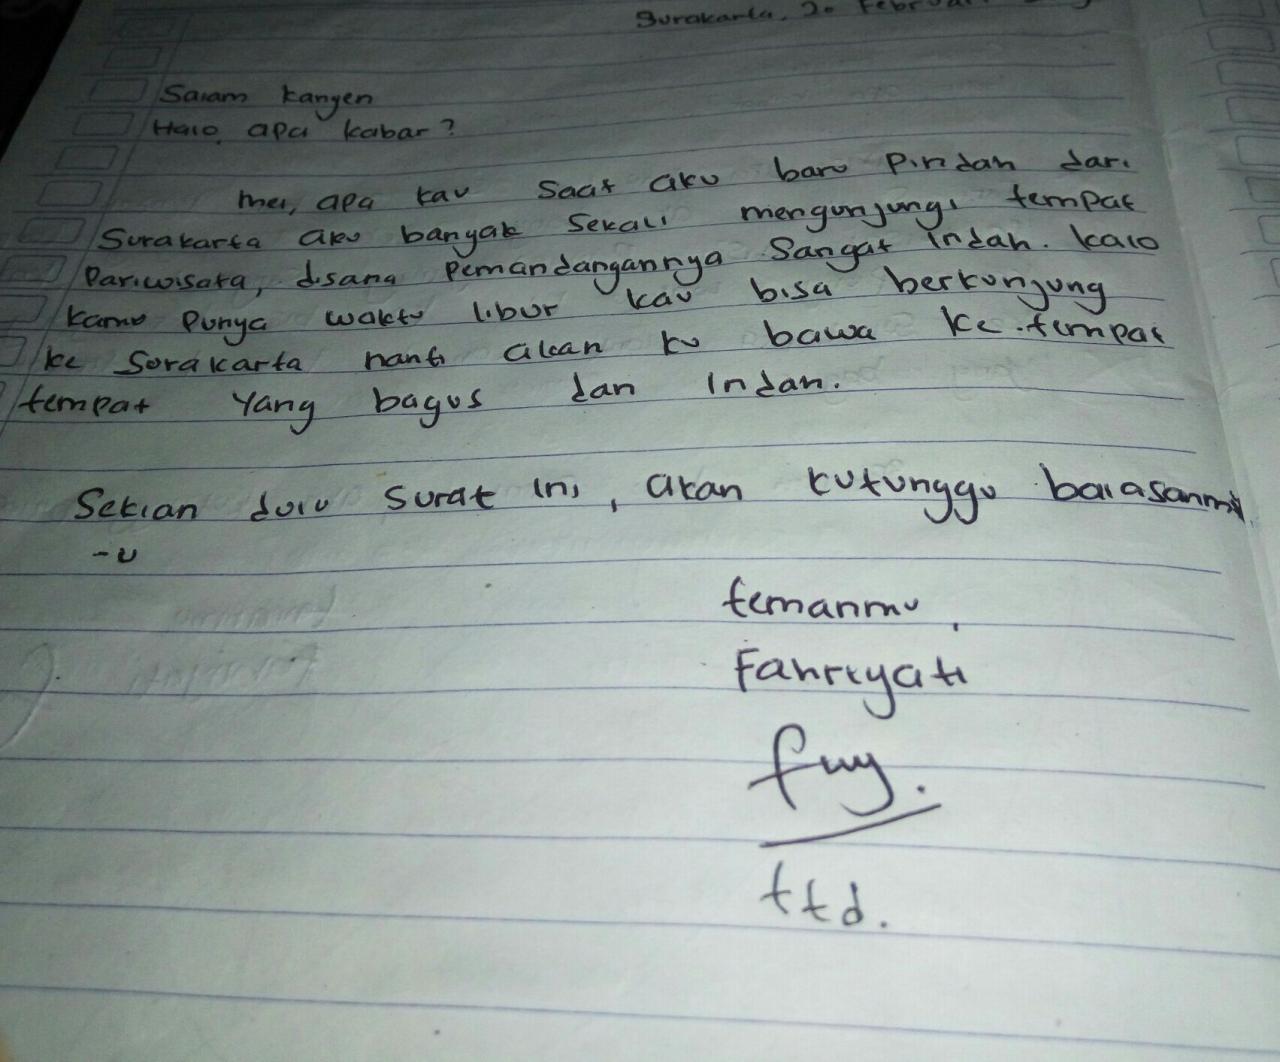 Surakarta, 20 Februari
Salam kangen
Halo, apa kabar?
Mei, apa kau saat aku baru pindah dari
Surakarta aku banyak sekali mengunjungi tempat
Pariwisata, disana pemandangannya sangat indah. kalo
kamu punya waktu libur kau bisa berkunjung
ke Surakarta nanti akan ku bawa ke.tempat
tempat yang bagus dan indah.
Sekian dulu surat ini, akan kutunggu balasanm
-u
temanmu,
Fahriyati
ttd.